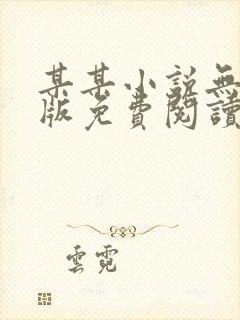 某某小説無
版免費閱讀
雲霓